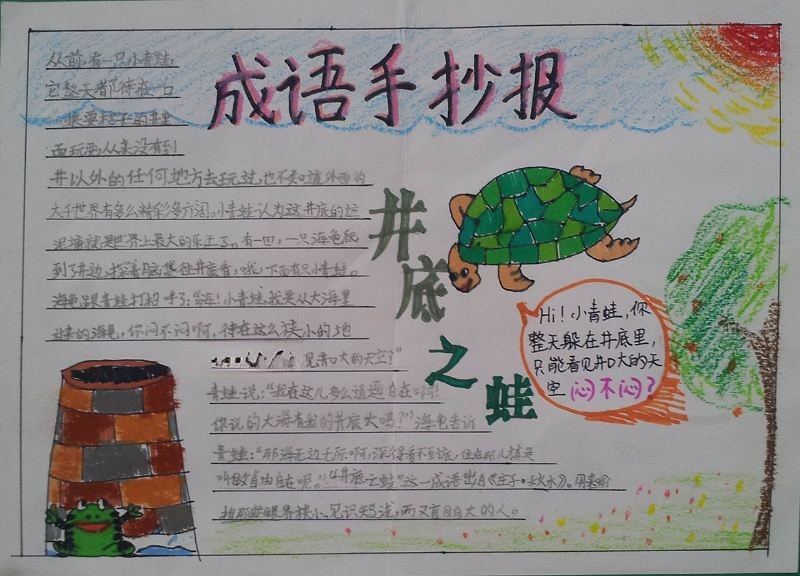 成语手抄报
井底之蛙
从前,有一只小青蛙,
它整天都待在一口
很要好的井里
面玩耍,从来没有到
井以外的任何地方去玩过,也不知道外面的
大千世界有多么精彩多么广阔。小青蛙认为这井底的烂
泥塘就是世界上最大的乐土了。有一回,一只海龟爬
到了井边,探着脑袋往井底看,哦,下面有只小青蛙。
海龟跟青蛙打招呼了:“嗨!小青蛙,我是从大海里
来的海龟,你闷不闷啊,待在这么狭小的地
见井口大的天空?”
青蛙说:“我在这儿多么逍遥自在啊!
你说的大海有我的井底大吗?”海龟告诉
青蛙:“那海无边无际啊,深得看不到底,住在那儿才是
叫做自由自在呢。”“井底之蛙”这一成语出自《庄子·秋水》。用来
指那些眼界狭小、见识短浅,而又盲目自大的人。
Hi!小青蛙,你
整天躲在井底里,
只能看见井口大的天
空闷不闷?